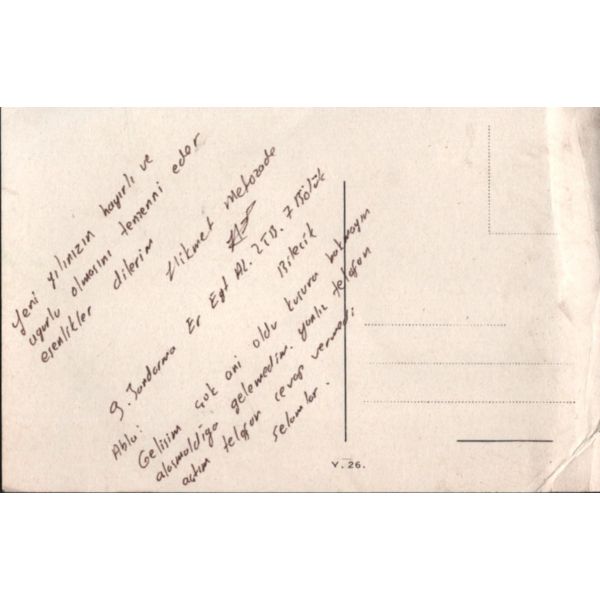 Yeni yılınızın hayırlı ve
uğurlu olmasını temenni eder
esenlikler dilerim
Hikmet
9. Jandarma Er Eğt Al. 2 TB. 7 Bölük
Bilecik
Abla:
Gelişim çok ani oldu kusura bakmayın
gelemedim. yanlız telefon
açtım telefon cevap vermedi
Selamlar.
V. 26.